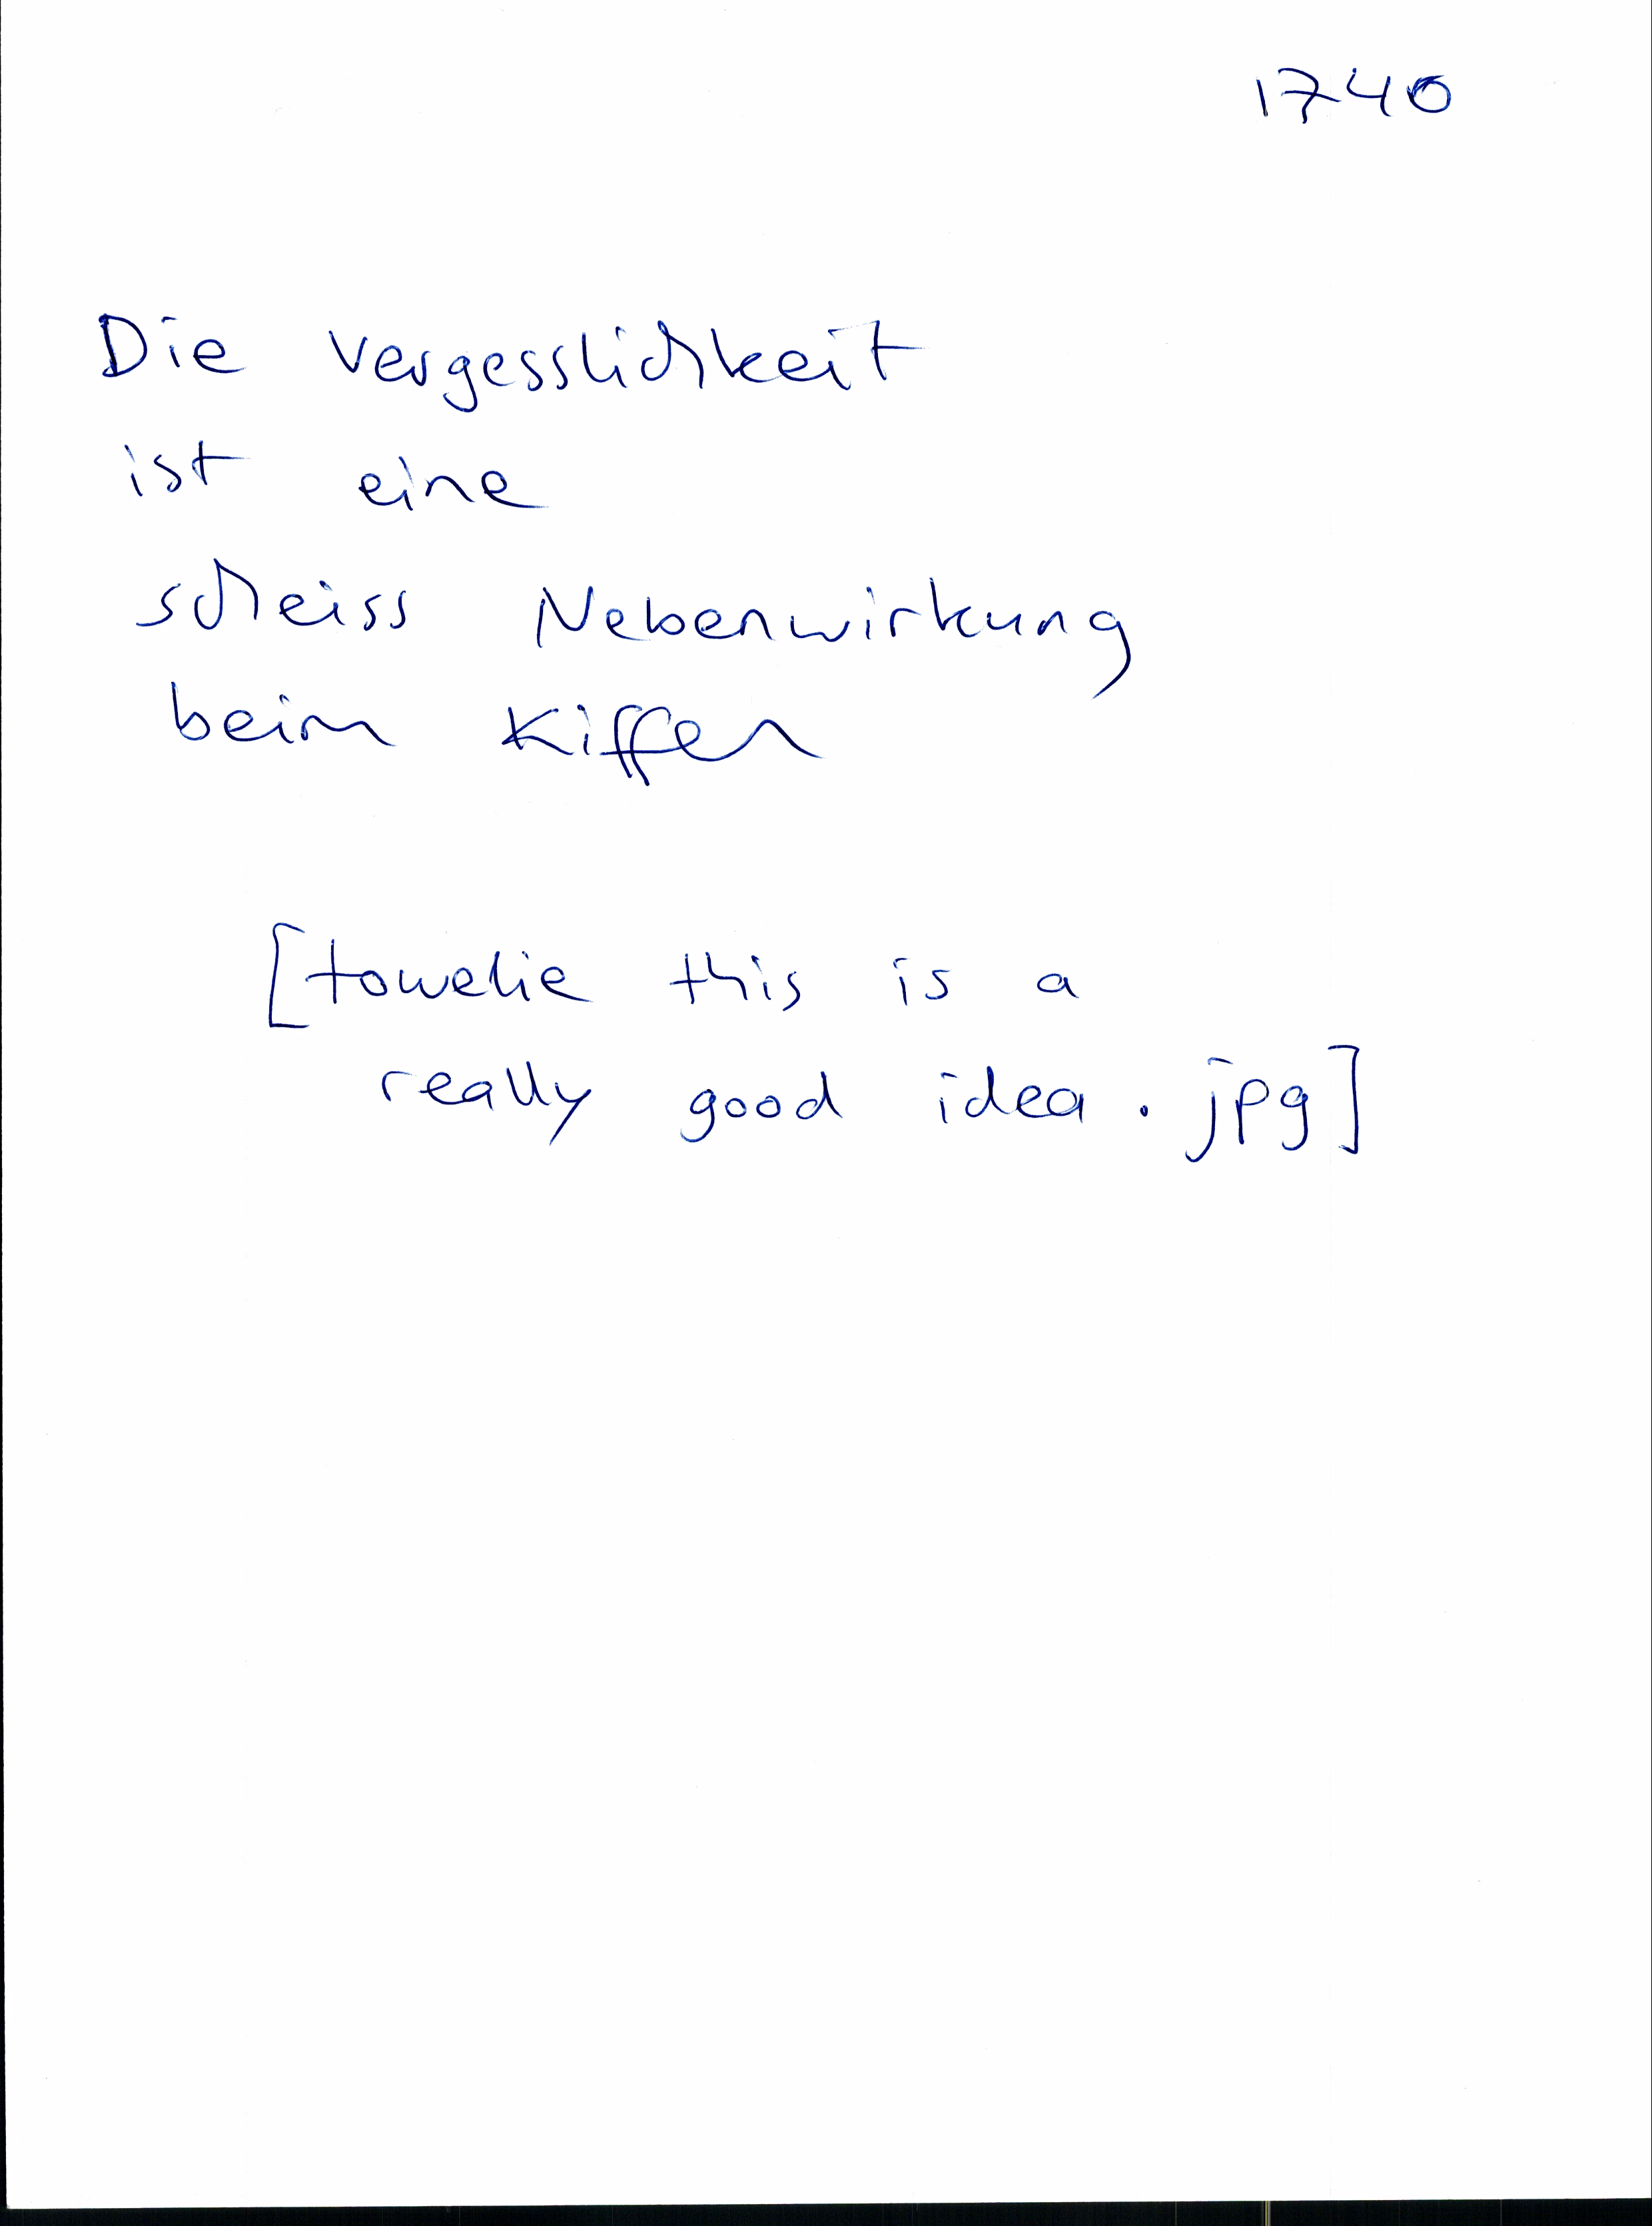 1740
Die Vergesslichkeit
ist eine
scheiss Nebenwirkung
beim Kiffen
[towelie this is a
really good idea . jpg]